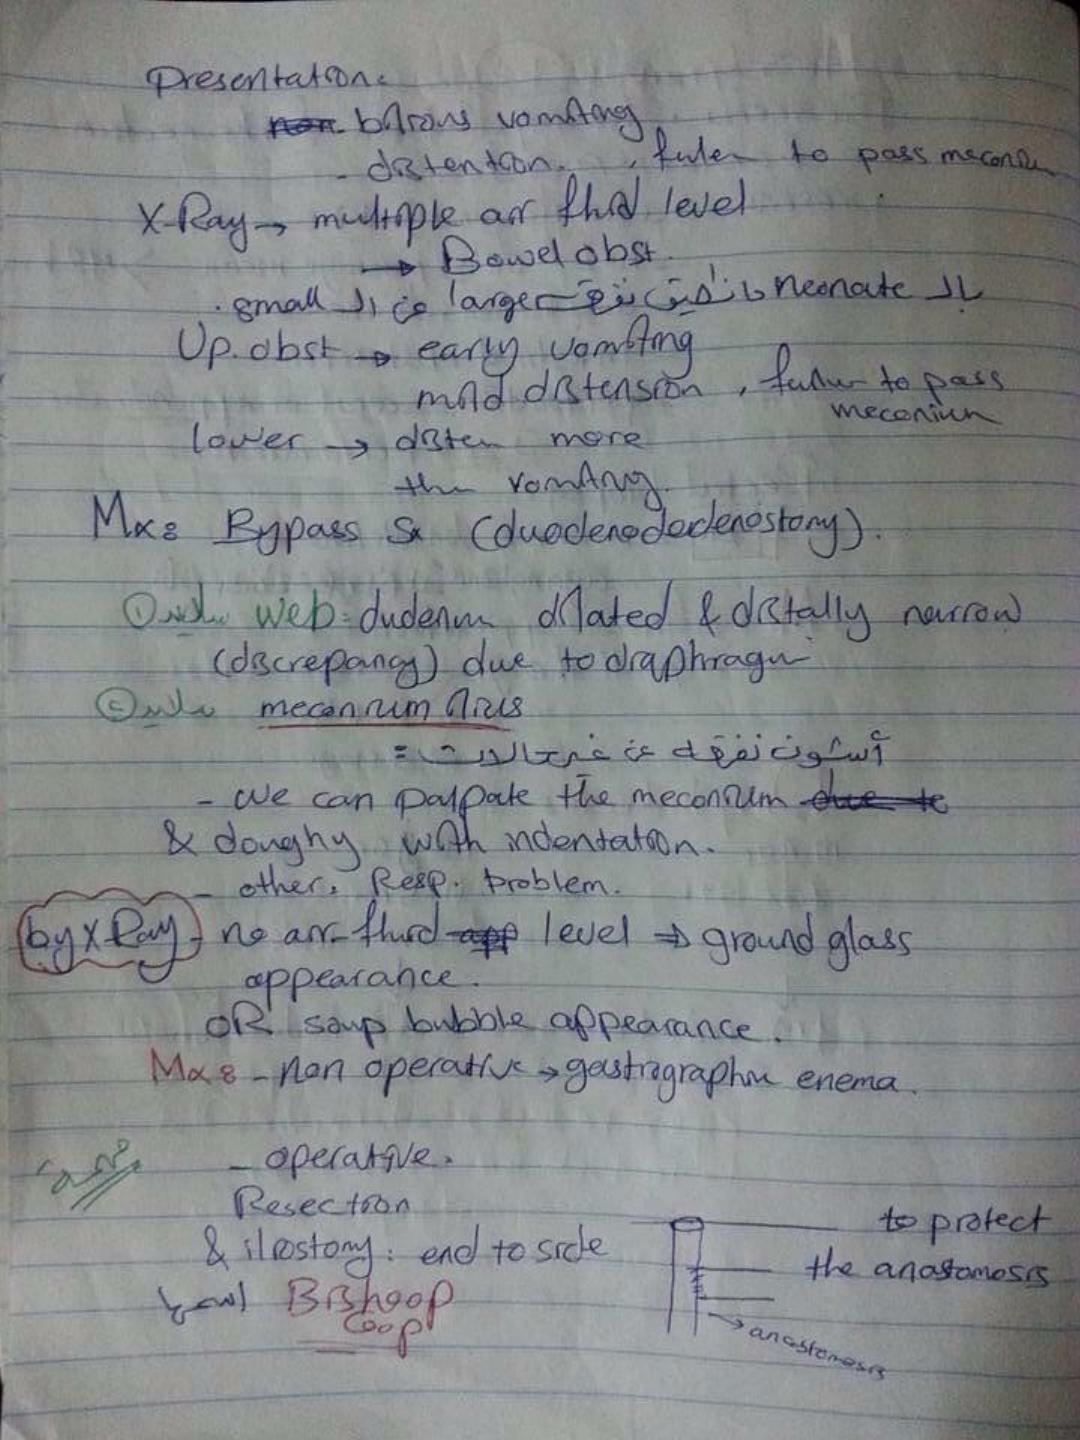 Presentation:
non bilious vomiting
- distention. , failer to pass meconium
X-Ray → multiple air fluid level
→ Bowel obst.
بالـ neonate ما نطيق نفرق large من الـ small.
Up. obst → early vomiting
mild distension , failur to pass
meconium
lower → disten more
the vomiting.
Mx: Bypass Sx (duodenododenostomy).
① سلايد web: dudenum dilated & distally narrow
(discrepancy) due to diaphragm
② سلايد meconium ilius
أشلون نفرقه عن غير حالات =
- we can palpate the meconium due to
& doughy with indentation.
- other, Resp. problem.
by X Ray - no air-fluid app level ⇒ ground glass
appearance.
OR soup bubble appearance.
Mx: - non operative → gastrographin enema.
- operative.
Resection
& iliostomy: end to side
اسمها Bishoop
Coop
to protect
the anastomosis
→ anastomosis